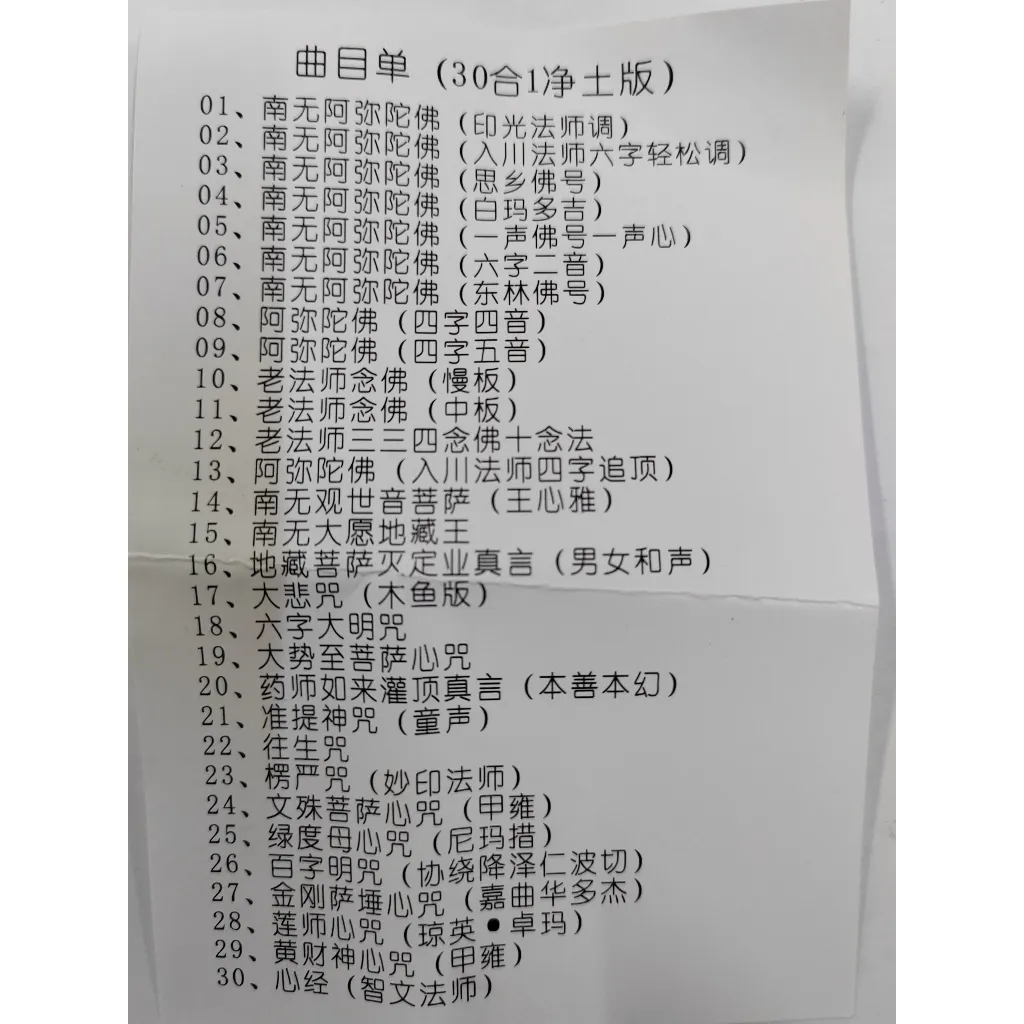 曲目单（30合1净土版）
01、南无阿弥陀佛（印光法师调）
02、南无阿弥陀佛（入川法师六字轻松调）
03、南无阿弥陀佛（思乡佛号）
04、南无阿弥陀佛（白玛多吉）
05、南无阿弥陀佛（一声佛号一声心）
06、南无阿弥陀佛（六字二音）
07、南无阿弥陀佛（东林佛号）
08、阿弥陀佛（四字四音）
09、阿弥陀佛（四字五音）
10、老法师念佛（慢板）
11、老法师念佛（中板）
12、老法师三三四念佛十念法
13、阿弥陀佛（入川法师四字追顶）
14、南无观世音菩萨（王心雅）
15、南无大愿地藏王
16、地藏菩萨灭定业真言（男女和声）
17、大悲咒（木鱼版）
18、六字大明咒
19、大势至菩萨心咒
20、药师如来灌顶真言（本善本幻）
21、准提神咒（童声）
22、往生咒
23、楞严咒（妙印法师）
24、文殊菩萨心咒（甲雍）
25、绿度母心咒（尼玛措）
26、百字明咒（协绕降泽仁波切）
27、金刚萨埵心咒（嘉曲华多杰）
28、莲师心咒（琼英•卓玛）
29、黄财神心咒（甲雍）
30、心经（智文法师）